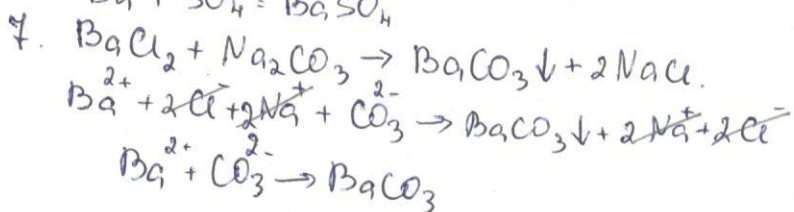 Ba + SO₄ = BaSO₄
7. BaCl₂ + Na₂CO₃ → BaCO₃↓ + 2NaCl.
Ba²⁺ + 2Cl⁻ + 2Na⁺ + CO₃²⁻ → BaCO₃↓ + 2Na⁺ + 2Cl⁻
Ba²⁺ + CO₃²⁻ → BaCO₃